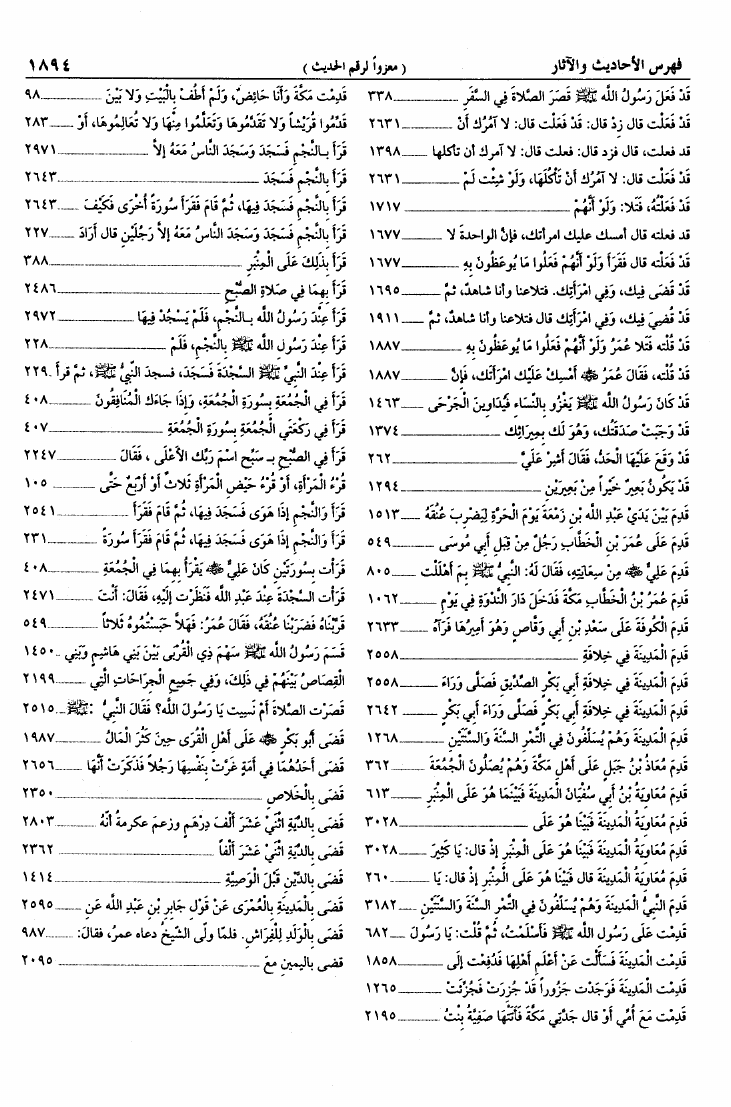 فهرس الأحاديث والآثار
( معزواً لرقم الحديث )
١٨٩٤
قَدْ فَعَلَ رَسُولُ اللَّه ﷺ قَصَرَ الصَّلاةَ فِي السَّفَرِ ٣٣٨
قَدْ فَعَلْت قال زِدْ قال: قَدْ فَعَلْت قال: لا آمُرُك أَنْ ٢٦٣١
قد فعلت، قال فزد قال: فعلت قال: لا آمرك أن تأكلها ١٣٩٨
قَدْ فَعَلْت قال: لا آمُرُك أَنْ تَأْكُلَهَا، وَلَوْ شِئْت لَمْ ٢٦٣١
قَدْ فَعَلْتُهُ، فَتَلا: وَلَوْ أَنَّهُمْ ١٧١٧
قد فعلته قال أمسك عليك امرأتك، فإنَّ الواحدة لا ١٦٧٧
قَدْ فَعَلْته قال فَقَرَأَ وَلَوْ أَنَّهُمْ فَعَلُوا مَا يُوعَظُونَ بِهِ ١٦٧٧
قَدْ قَضَى فِيك، وَفِي امْرَأَتِك. فتلاعنا وأنا شاهدٌ، ثمَّ ١٦٩٥
قَدْ قُضِيَ فِيك، وَفِي امْرَأَتِك قال فتلاعنا وأنا شاهدٌ، ثمَّ ١٩١١
قَدْ قُلْته فَتَلا عُمَرُ وَلَوْ أَنَّهُمْ فَعَلُوا مَا يُوعَظُونَ بِهِ ١٨٨٧
قَدْ قُلْته، فَقَالَ عُمَرُ ﷺ أَمْسِكْ عَلَيْك امْرَأَتَك، فَإِنَّ ١٨٨٧
قَدْ كَانَ رَسُولُ اللَّهِ ﷺ يَغْزُو بِالنِّسَاءِ فَيُدَاوِينَ الْجَرْحَى ١٤٦٣
قَدْ وَجَبَتْ صَدَقَتُك، وَهُوَ لَك بِمِيرَاثِك ١٣٧٤
قَدْ وَقَعَ عَلَيْهَا الْحَدُّ، فَقَالَ أَشِرْ عَلَيَّ ٢٦٢
قَدْ يَكُونُ بَعِيرٌ خَيْراً مِنْ بَعِيرَيْنِ ١٢٩٤
قَدِمَ بَيْنَ يَدَيْ عَبْدِ اللَّه بْنِ زَمْعَةَ يَوْمَ الْحَرَّةِ لِيَضْرِبَ عُنُقَهُ ١٥١٣
قَدِمَ عَلَى عُمَرَ بْنِ الْخَطَّابِ رَجُلٌ مِنْ قِبَلِ أَبِي مُوسَى ٥٤٩
قَدِمَ عَلِيٌّ ﷺ مِنْ سِعَايَتِهِ، فَقَالَ لَهُ: النَّبِيُّ ﷺ بِمَ أَهْلَلْت ٨٠٥
قَدِمَ عُمَرُ بْنُ الْخَطَّابِ مَكَّةَ فَدَخَلَ دَارَ النَّدْوَةِ فِي يَوْمِ ١٠٦٢
قَدِمَ الْكُوفَةَ عَلَى سَعْدِ بْنِ أَبِي وَقَّاصٍ وَهُوَ أَمِيرُهَا فَرَآهُ ٢٦٣٣
قَدِمَ الْمَدِينَةَ فِي خِلافَةِ ٢٥٥٨
قَدِمَ الْمَدِينَةَ فِي خِلافَةِ أَبِي بَكْرٍ الصِّدِّيقِ فَصَلَّى وَرَاءَ ٢٥٥٨
قَدِمَ الْمَدِينَةَ فِي خِلافَةِ أَبِي بَكْرٍ فَصَلَّى وَرَاءَ أَبِي بَكْرٍ ٢٦٤٢
قَدِمَ الْمَدِينَةَ وَهُمْ يُسْلِفُونَ فِي التَّمْرِ السَّنَةَ وَالسَّنَتَيْنِ ١٢٦٨
قَدِمَ مُعَاذُ بْنُ جَبَلٍ عَلَى أَهْلِ مَكَّةَ وَهُمْ يُصَلُّونَ الْجُمُعَةَ ٣٦٢
قَدِمَ مُعَاوِيَةُ بْنُ أَبِي سُفْيَانَ الْمَدِينَةَ فَبَيْنَمَا هُوَ عَلَى الْمِنْبَرِ ٦١٣
قَدِمَ مُعَاوِيَةُ الْمَدِينَةَ فَبَيْنَا هُوَ عَلَى ٣٠٢٨
قَدِمَ مُعَاوِيَةُ الْمَدِينَةَ فَبَيْنَا هُوَ عَلَى الْمِنْبَرِ إذْ قال: يَا كَثِيرَ ٣٠٢٨
قَدِمَ مُعَاوِيَةُ الْمَدِينَةَ قال فَبَيْنَا هُوَ عَلَى الْمِنْبَرِ إذْ قال: يَا ٢٦٠
قَدِمَ النَّبِيُّ الْمَدِينَةَ وَهُمْ يُسْلِفُونَ فِي التَّمْرِ السَّنَةَ وَالسَّنَتَيْنِ ٣١٨٢
قَدِمْت عَلَى رَسُولِ اللَّه ﷺ فَأَسْلَمْت، ثُمَّ قُلْت: يَا رَسُولَ ٦٨٢
قَدِمْت الْمَدِينَةَ فَسَأَلْت عَنْ أَعْلَمِ أَهْلِهَا فَدُفِعْت إلَى ١٨٥٨
قَدِمْت الْمَدِينَةَ فَوَجَدْت جَزُوراً قَدْ جُزِرَتْ فَجُزِّئَتْ ١٢٦٥
قَدِمْت مَعَ أُمِّي أَوْ قال جَدَّتِي مَكَّةَ فَأَتَتْهَا صَفِيَّةُ بِنْتُ ٢١٩٥
قَدِمْت مَكَّةَ وَأَنَا حَائِضٌ، وَلَمْ أَطُفْ بِالْبَيْتِ وَلا بَيْنَ ٩٨
قَدِّمُوا قُرَيْشاً وَلا تَقَدَّمُوهَا وَتَعَلَّمُوا مِنْهَا وَلا تُعَالِمُوهَا، أَوْ ٢٨٣
قَرَأَ بِالنَّجْمِ فَسَجَدَ وَسَجَدَ النَّاسُ مَعَهُ إلاَّ ٢٩٧١
قَرَأَ بِالنَّجْمِ فَسَجَدَ ٢٦٤٣
قَرَأَ بِالنَّجْمِ فَسَجَدَ فِيهَا، ثُمَّ قَامَ فَقَرَأَ سُورَةً أُخْرَى فَكَيْفَ ٢٦٤٣
قَرَأَ بِالنَّجْمِ فَسَجَدَ وَسَجَدَ النَّاسُ مَعَهُ إلاَّ رَجُلَيْنِ قال أَرَادَ ٢٢٧
قَرَأَ بِذَلِكَ عَلَى الْمِنْبَرِ ٣٨٨
قَرَأَ بِهِمَا فِي صَلاةِ الصُّبْحِ ٢٤٨٦
قَرَأَ عِنْدَ رَسُولِ اللَّه بِالنَّجْمِ، فَلَمْ يَسْجُدْ فِيهَا ٢٩٧٢
قَرَأَ عِنْدَ رَسُولِ اللَّهِ ﷺ بِالنَّجْمِ، فَلَمْ ٢٢٨
قَرَأَ عِنْدَ النَّبِيِّ ﷺ السَّجْدَةَ فَسَجَدَ، فسجد النبيُّ ﷺ، ثمَّ قرأ ٢٢٩
قَرَأَ فِي الْجُمُعَةِ بِسُورَةِ الْجُمُعَةِ، وَإِذَا جَاءَك الْمُنَافِقُونَ ٤٠٨
قَرَأَ فِي رَكْعَتَيْ الْجُمُعَةِ بِسُورَةِ الْجُمُعَةِ ٤٠٧
قَرَأَ فِي الصُّبْحِ بِـ سَبِّحْ اسْمَ رَبِّك الأَعْلَى ، فَقَالَ ٢٢٤٧
قُرْءُ الْمَرْأَةِ، أَوْ قُرْءُ حَيْضِ الْمَرْأَةِ ثَلاثٌ أَوْ أَرْبَعٌ حَتَّى ١٠٥
قَرَأَ وَالنَّجْمِ إذَا هَوَى فَسَجَدَ فِيهَا، ثُمَّ قَامَ فَقَرَأَ ٢٥٤١
قَرَأَ وَالنَّجْمِ إذَا هَوَى فَسَجَدَ فِيهَا، ثُمَّ قَامَ فَقَرَأَ سُورَةً ٢٣١
قَرَأْت بِسُورَتَيْنِ كَانَ عَلِيٌّ ﷺ يَقْرَأُ بِهِمَا فِي الْجُمُعَةِ ٤٠٨
قَرَأْت السَّجْدَةَ عِنْدَ عَبْدِ اللَّه فَنَظَرْت إلَيْهِ، فَقَالَ: أَنْتَ ٢٤٧١
قَرَّبْنَاهُ فَضَرَبْنَا عُنُقَهُ، فَقَالَ عُمَرُ: فَهَلاَّ حَبَسْتُمُوهُ ثَلاثاً ٥٤٩
قَسَمَ رَسُولُ اللَّه ﷺ سَهْمَ ذِي الْقُرْبَى بَيْنَ بَنِي هَاشِمٍ وَبَنِي ١٤٥٠
الْقِصَاصُ بَيْنَهُمْ فِي ذَلِكَ، وَفِي جَمِيعِ الْجِرَاحَاتِ الَّتِي ٢١٩٩
قَصُرَت الصَّلاةُ أَمْ نَسِيت يَا رَسُولَ اللَّه؟ فَقَالَ النَّبِيُّ ﷺ: ٢٥١٥
قَضَى أَبُو بَكْرٍ ﷺ عَلَى أَهْلِ الْقُرَى حِينَ كَثُرَ الْمَالُ ١٩٨٧
قَضَى أَحَدُهُمَا فِي أَمَةٍ غَرَّتْ بِنَفْسِهَا رَجُلاً فَذَكَرَتْ أَنَّهَا ٢٦٥٦
قَضَى بِالْخَلاصِ ٢٣٥٠
قَضَى بِالدِّيَةِ اثْنَيْ عَشَرَ أَلْفَ دِرْهَمٍ وزعم عكرمةُ أنهُ ٢٨٠٣
قَضَى بِالدِّيَةِ اثْنَيْ عَشَرَ أَلْفاً ٢٣٦٢
قَضَى بِالدَّيْنِ قَبْلَ الْوَصِيَّةِ ١٤١٤
قَضَى بِالْمَدِينَةِ بِالْعُمْرَى عَنْ قَوْلِ جَابِرِ بْنِ عَبْدِ اللَّه عَنِ ٢٥٩٥
قَضَى بِالْوَلَدِ لِلْفِرَاشِ. فلمَّا ولَّى الشَّيخُ دعاه عمرُ، فقالَ: ٩٨٧
قضى باليمينِ معَ ٢٠٩٥